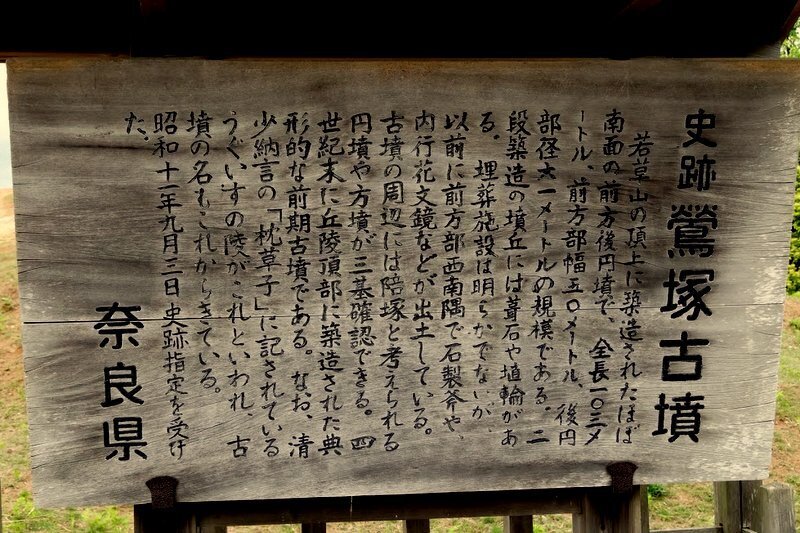 史跡 鶯塚古墳
若草山の頂上に築造されたほぼ
南面の前方後円墳で、全長一〇三メ
ートル、前方部幅五〇メートル、後円
部径六一メートルの規模である。二
段築造の墳丘には葺石や埴輪があ
る。埋葬施設は明らかでないが、
以前に前方部西南隅で石製斧や、
内行花文鏡などが出土している。
古墳の周辺には陪塚と考えられる
円墳や方墳が三基確認できる。四
世紀末に丘陵頂部に築造された典
形的な前期古墳である。なお、清
少納言の「枕草子」に記されている
うぐいすの陵がこれといわれ、古
墳の名もこれからきている。
昭和十一年九月三日史跡指定を受け
た。
奈良県